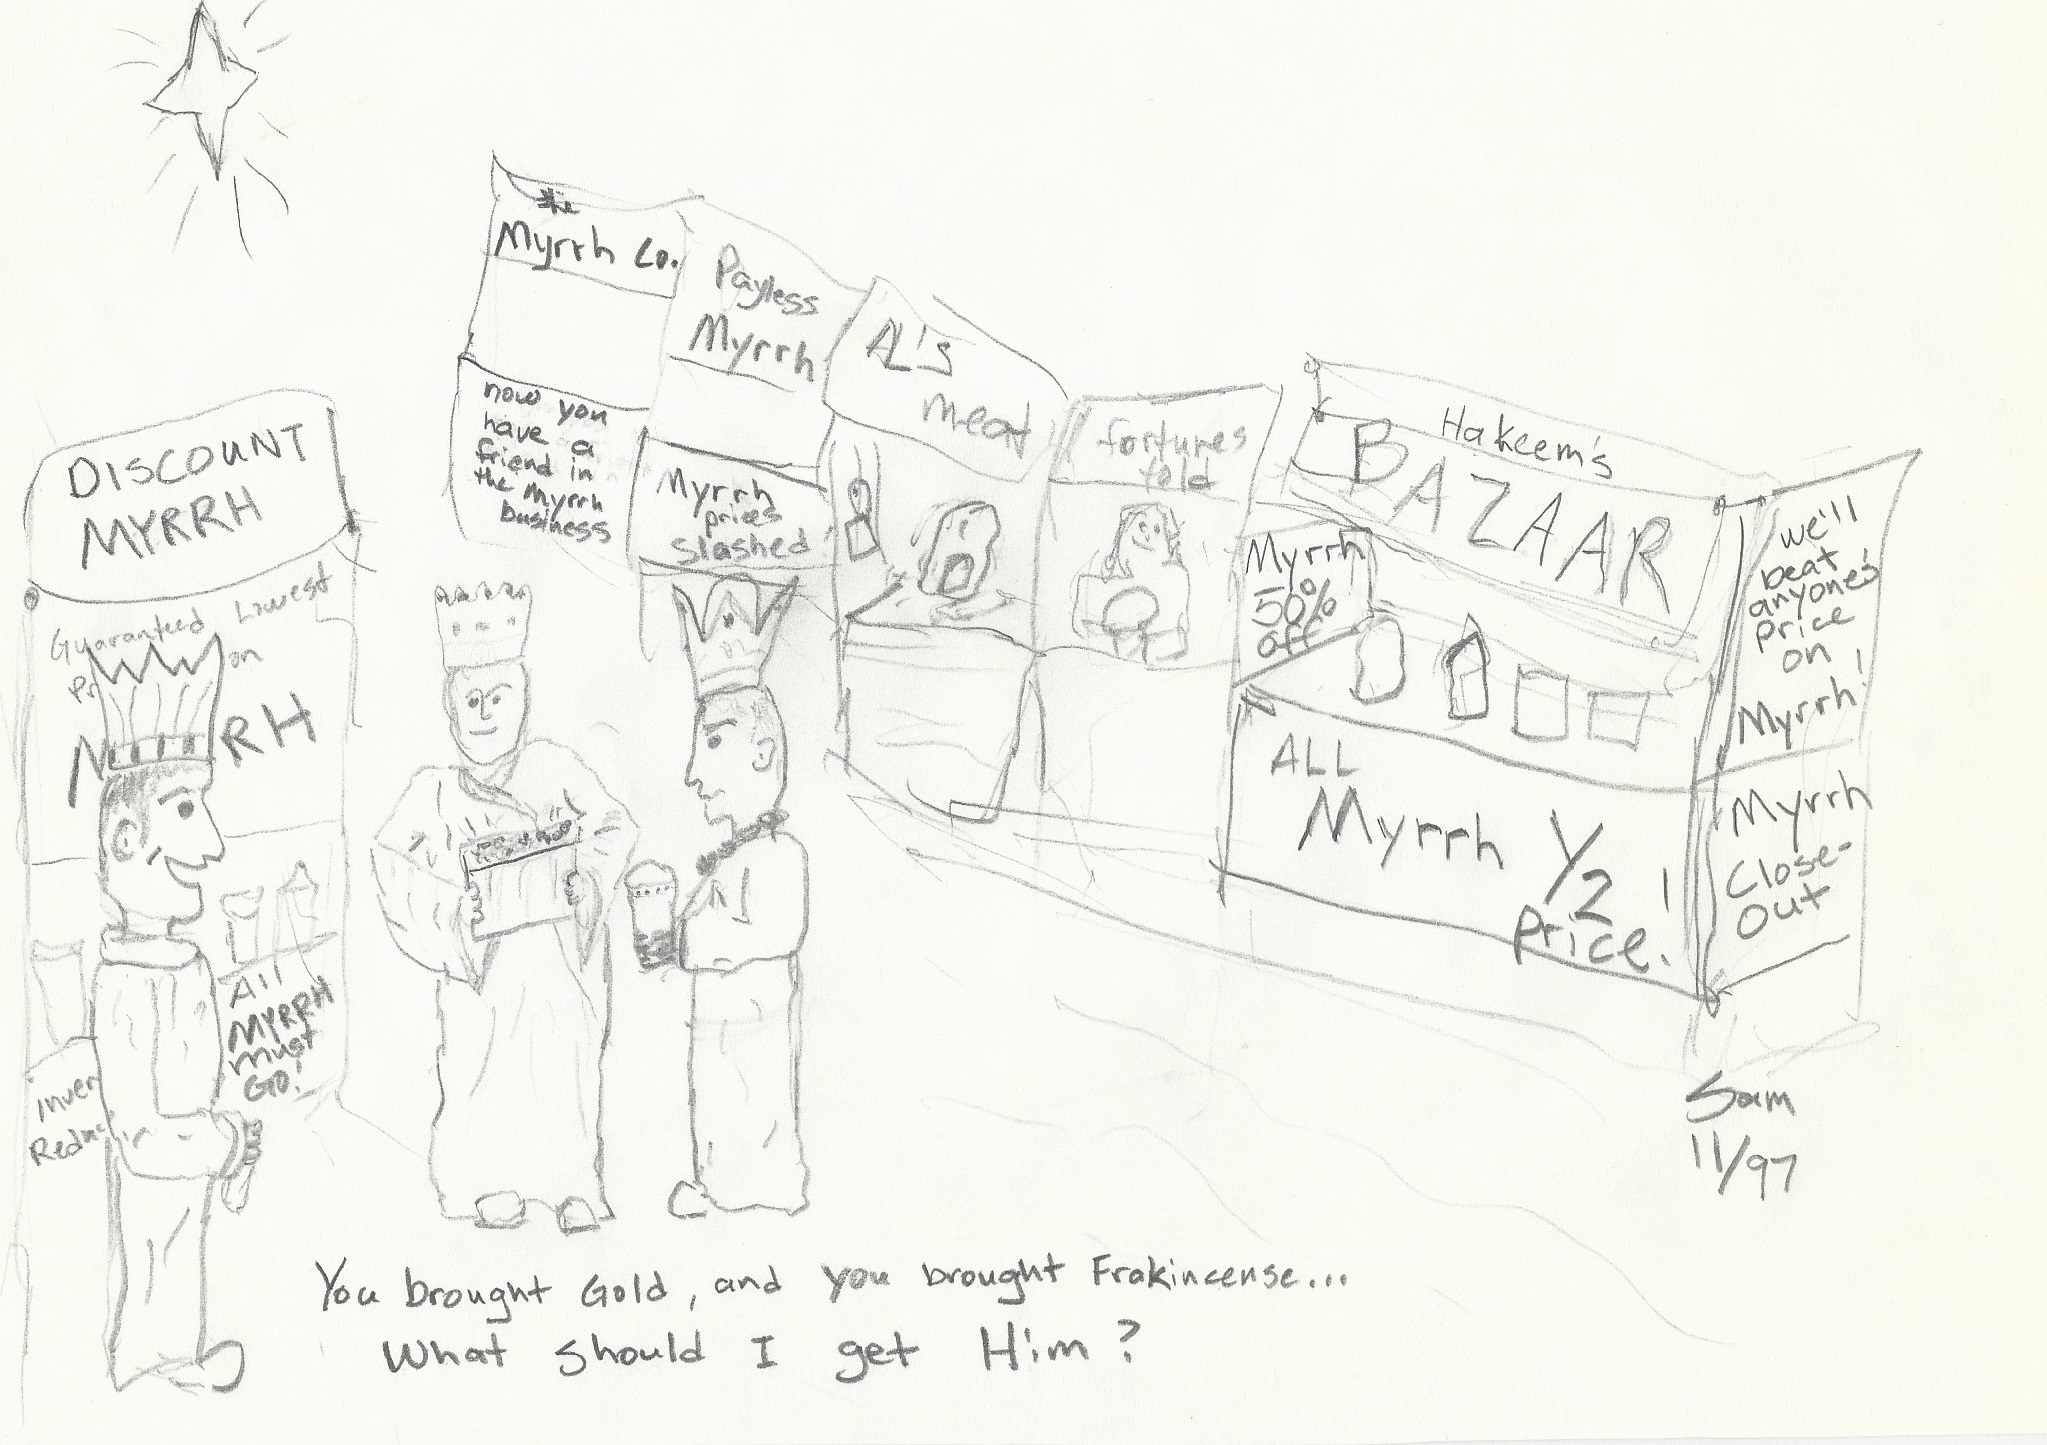 DISCOUNT
MYRRH
Guaranteed Lowest
Pr on
M RH
All
MYRRH
must
GO!
inven
Redu
the
Myrrh Co.
now you
have a
friend in
the Myrrh
business
Payless
Myrrh
Myrrh
prices
slashed!
AL's
meat
fortunes
told
Hakeem's
BAZAAR
Myrrh
50%
off
ALL
Myrrh 1/2
Price!
we'll
beat
anyone's
price
on
Myrrh!
Myrrh
Close-
Out
Sam
11/97
You brought Gold, and you brought Frakincense...
What should I get Him?